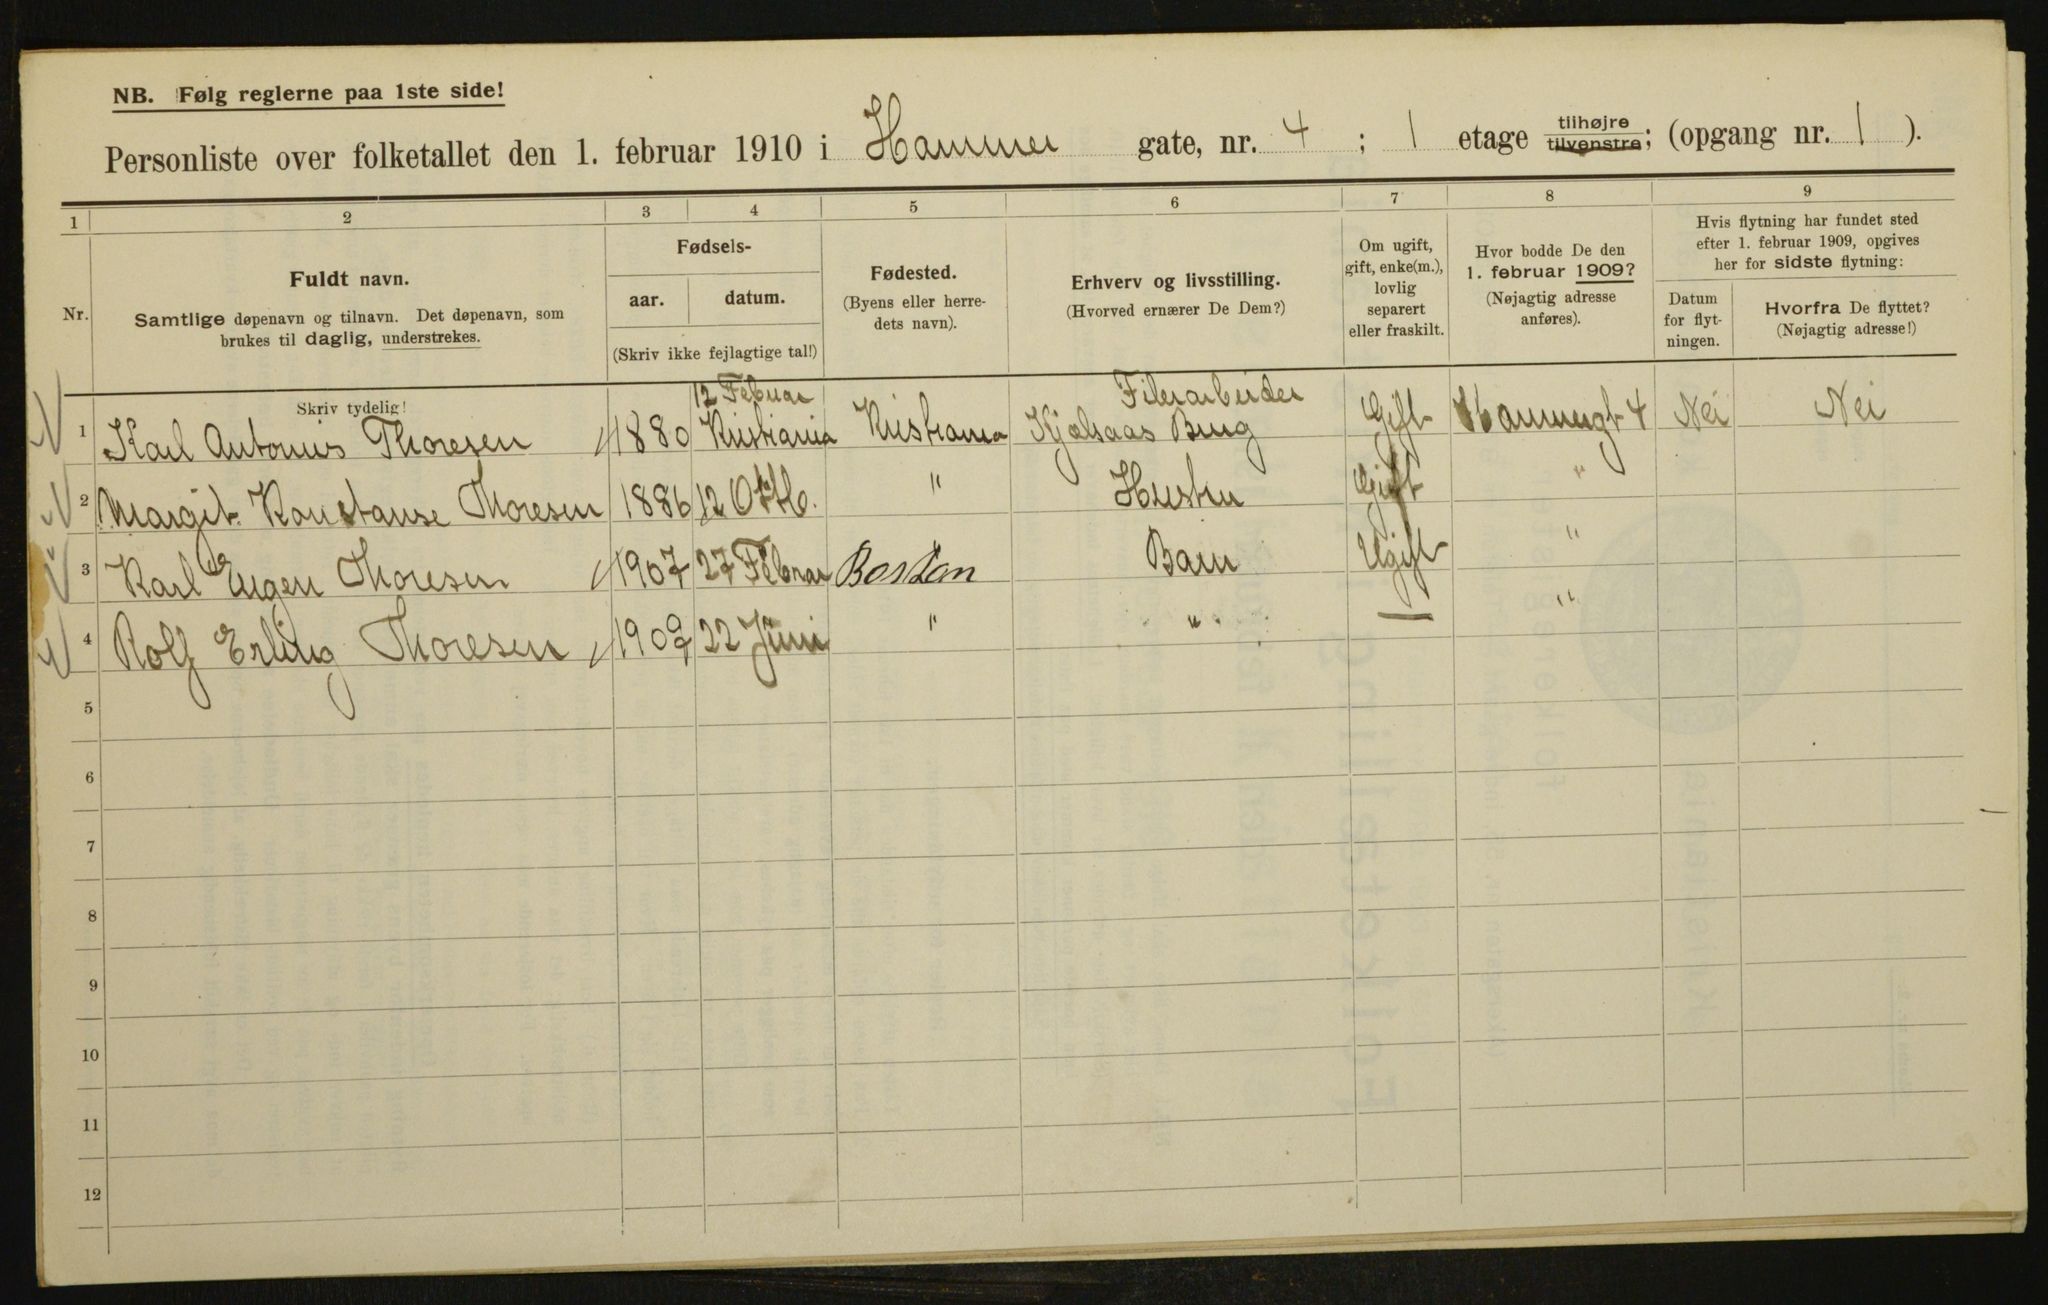 NB. Følg reglerne paa 1ste side!
Personliste over folketallet den 1. februar 1910 i Hammer gate, nr. 4 ; 1 etage tilhøjre tilvenstre; (opgang nr. 1 ).
1 2 3 4 5 6 7 8 9
Nr.
Fuldt navn.
Samtlige døpenavn og tilnavn. Det døpenavn, som
brukes til daglig, understrekes.
Fødsels-
aar. datum.
(Skriv ikke fejlagtige tal!)
Fødested.
(Byens eller herre-
dets navn).
Erhverv og livsstilling.
(Hvorved ernærer De Dem?)
Om ugift,
gift, enke(m.),
lovlig
separert
eller fraskilt.
Hvor bodde De den
1. februar 1909?
(Nøjagtig adresse
anføres).
Hvis flytning har fundet sted
efter 1. februar 1909, opgives
her for sidste flytning:
Datum
for flyt-
ningen.
Hvorfra De flyttet?
(Nøjagtig adresse!)
Skriv tydelig!
12 Februar Filerarbeider
1 Karl Antonius Thoresen 1880 Kristiania Kristiania Kjelsaas Brug Gift Hammergt 4 Nei Nei
2 Margit Konstanse Thoresen 1886 12 " Hustru Gift "
3 Karl Eugen Thoresen 1907 27 Februar Boston Barn Ugift "
4 Rolf Erling Thoresen 1909 22 Juni " " — "
5
6
7
8
9
10
11
12